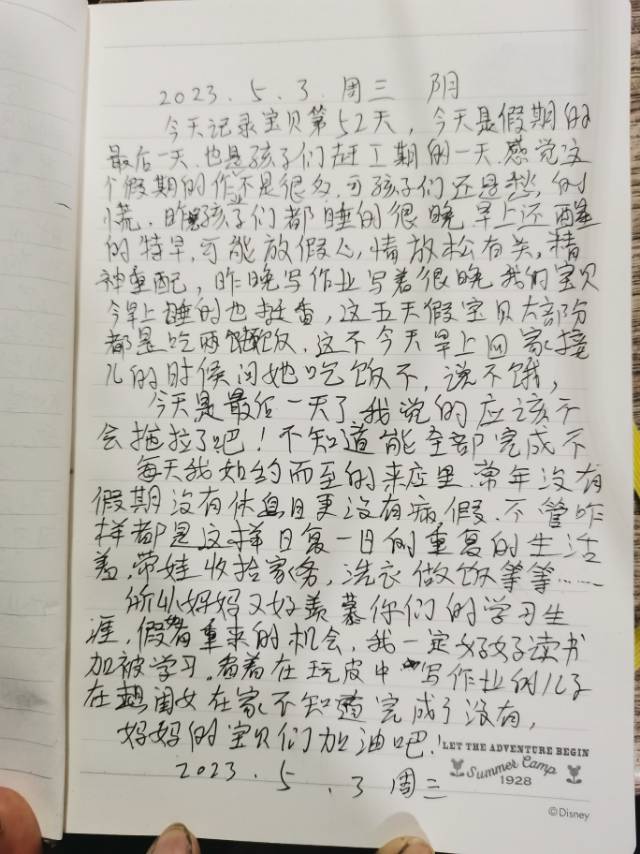 2023.5.3.周三 阴
今天记录宝贝第52天，今天是假期的
最后一天.也是孩子们赶工期的一天.感觉这
个假期的作不是很多.可孩子们还是愁的
慌.昨晚孩子们都睡的很晚.早上还醒
的特早.可能放假心情放松有关，精
神重配，昨晚写作业写着很晚我的宝贝
今早上睡的也挺香，这五天假宝贝大部份
都是吃两顿饭.这不今天早上回家接
儿的时候问她吃饭不，说不饿，
今天是最后一天了.我说的应该不
会拖拉了吧！不知道能全部完成不
每天我如约而至的来店里.常年没有
假期没有休息日更没有病假.不管咋
样都是这样日复一日的重复的生活
着.带娃收拾家务，洗衣做饭等等……
所以妈妈又好羡慕你们的学习生
涯，假有重来的机会，我一定好好读书
加被学习.看着在玩皮中写作业的儿子
在想闺女在家不知道完成了没有，
妈妈的宝贝们加油吧！
LET THE ADVENTURE BEGIN
Summer Camp
1928
2023.5.3周三
©Disney